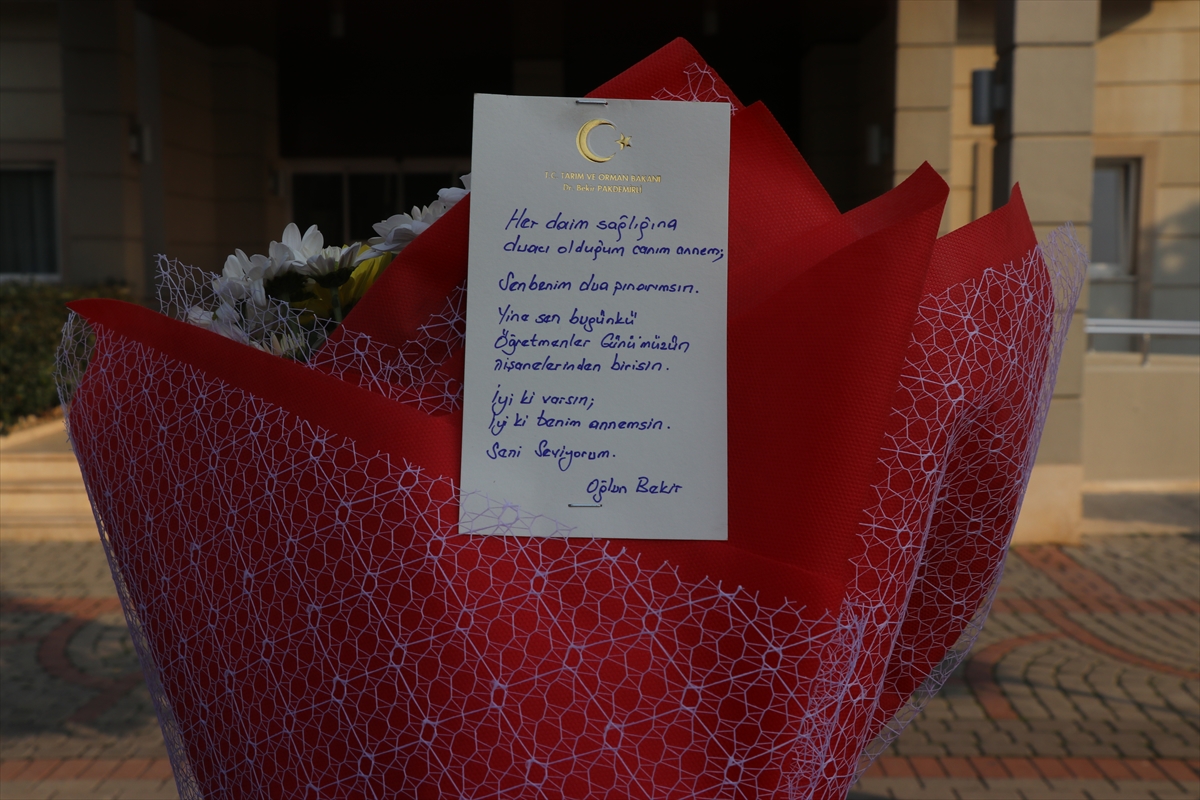 T.C. TARIM VE ORMAN BAKANI
Dr. Bekir PAKDEMİRLİ
Her daim sağlığına
duacı olduğum canım annem;
Sen benim dua pınarımsın.
Yine sen bugünkü
Öğretmenler Günü'müzün
nişanelerinden birisin.
İyi ki varsın;
İyi ki benim annemsin.
Seni Seviyorum.
Oğlun Bekir